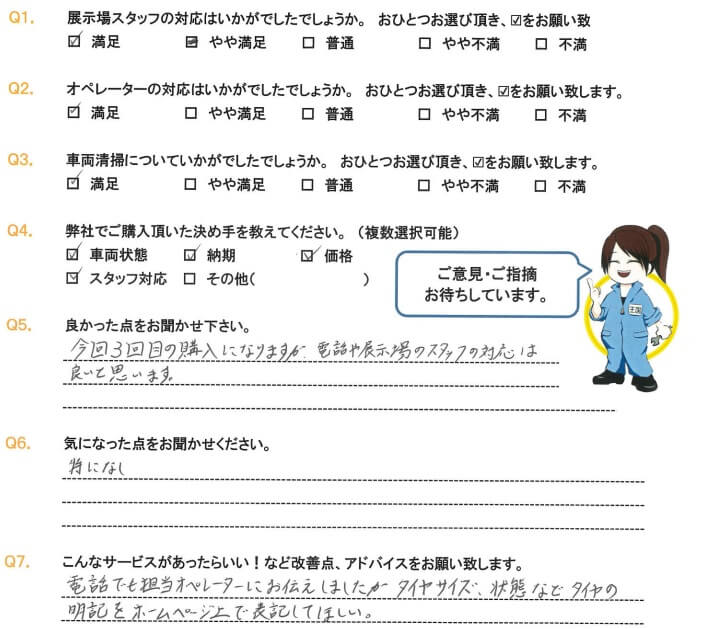 Q1. 展示場スタッフの対応はいかがでしたでしょうか。 おひとつお選び頂き、☑をお願い致
☑ 満足 ☐ やや満足 ☐ 普通 ☐ やや不満 ☐ 不満
Q2. オペレーターの対応はいかがでしたでしょうか。 おひとつお選び頂き、☑をお願い致します。
☑ 満足 ☐ やや満足 ☐ 普通 ☐ やや不満 ☐ 不満
Q3. 車両清掃についていかがでしたでしょうか。 おひとつお選び頂き、☑をお願い致します。
☑ 満足 ☐ やや満足 ☐ 普通 ☐ やや不満 ☐ 不満
Q4. 弊社でご購入頂いた決め手を教えてください。(複数選択可能)
☑ 車両状態 ☑ 納期 ☑ 価格
☑ スタッフ対応 ☐ その他( )
ご意見・ご指摘
お待ちしています。
Q5. 良かった点をお聞かせ下さい。
今回3回目の購入になりますが、電話や展示場のスタッフの対応は
良いと思います。
Q6. 気になった点をお聞かせください。
特になし
Q7. こんなサービスがあったらいい！など改善点、アドバイスをお願い致します。
電話でも担当オペレーターにお伝えしましたが タイヤサイズ、状態など タイヤの
明記をホームページ上で表記してほしい。